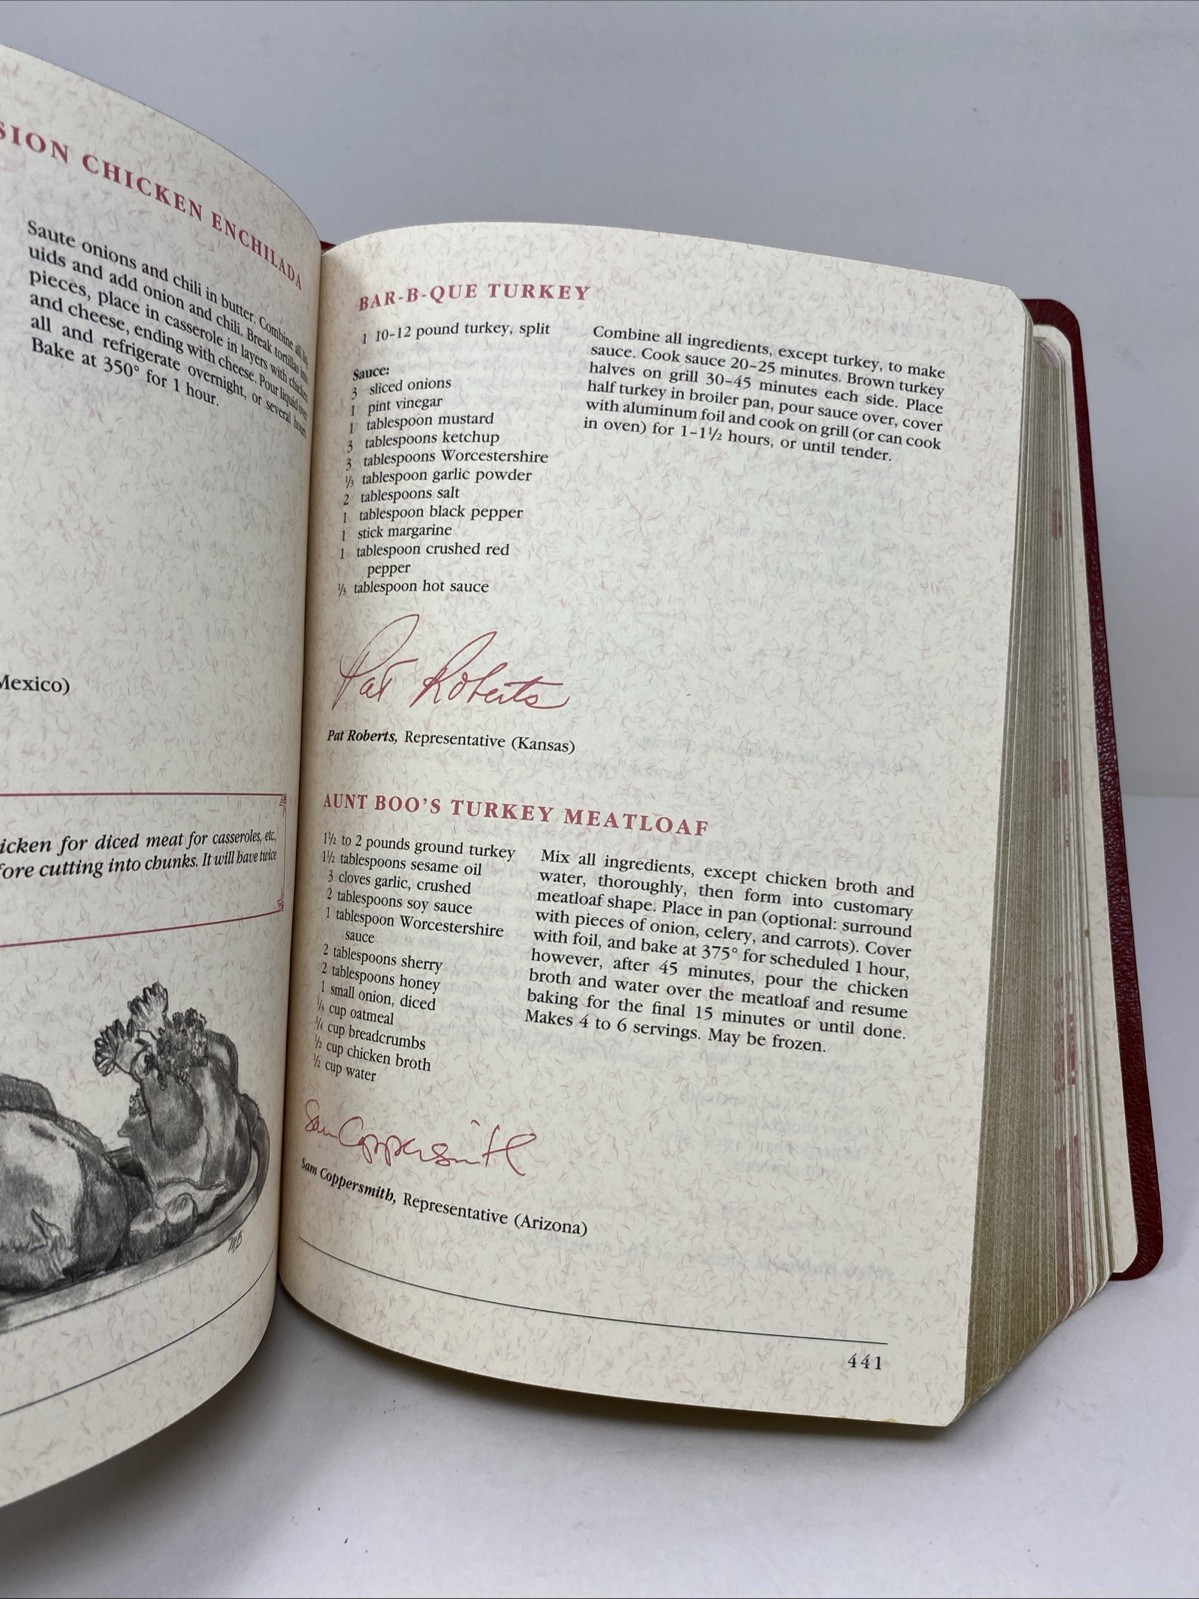 SION CHICKEN ENCHILADA
Saute onions and chili in butter. Combine all liq-
uids and add onion and chili. Break tortillas into
pieces, place in casserole in layers with chicken
and cheese, ending with cheese. Pour liquid over
all and refrigerate overnight, or several hours
Bake at 350° for 1 hour.
Mexico)
icken for diced meat for casseroles, etc.,
fore cutting into chunks. It will have twice
MB
BAR-B-QUE TURKEY
1 10-12 pound turkey, split
Sauce:
3 sliced onions
1 pint vinegar
1 tablespoon mustard
3 tablespoons ketchup
3 tablespoons Worcestershire
⅓ tablespoon garlic powder
2 tablespoons salt
1 tablespoon black pepper
1 stick margarine
1 tablespoon crushed red
pepper
⅓ tablespoon hot sauce
Combine all ingredients, except turkey, to make
sauce. Cook sauce 20-25 minutes. Brown turkey
halves on grill 30-45 minutes each side. Place
half turkey in broiler pan, pour sauce over, cover
with aluminum foil and cook on grill (or can cook
in oven) for 1-1½ hours, or until tender.
Pat Roberts
Pat Roberts, Representative (Kansas)
AUNT BOO'S TURKEY MEATLOAF
1½ to 2 pounds ground turkey
1½ tablespoons sesame oil
3 cloves garlic, crushed
2 tablespoons soy sauce
1 tablespoon Worcestershire
sauce
2 tablespoons sherry
2 tablespoons honey
1 small onion, diced
¼ cup oatmeal
¼ cup breadcrumbs
½ cup chicken broth
½ cup water
Mix all ingredients, except chicken broth and
water, thoroughly, then form into customary
meatloaf shape. Place in pan (optional: surround
with pieces of onion, celery, and carrots). Cover
with foil, and bake at 375° for scheduled 1 hour,
however, after 45 minutes, pour the chicken
broth and water over the meatloaf and resume
baking for the final 15 minutes or until done.
Makes 4 to 6 servings. May be frozen.
Sam Coppersmith
Sam Coppersmith, Representative (Arizona)
441